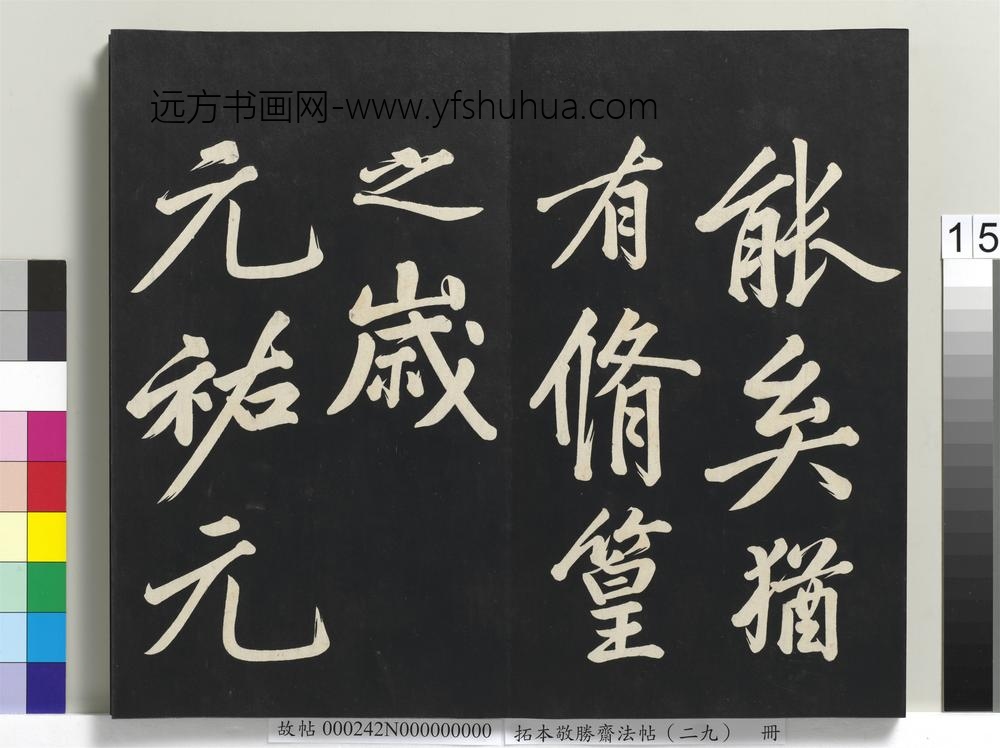 远方书画网-www.yfshuhua.com
能矣猶
有脩篁
之歲
元祐元
15
故帖 000242N000000000
拓本敬勝齋法帖（二九） 冊